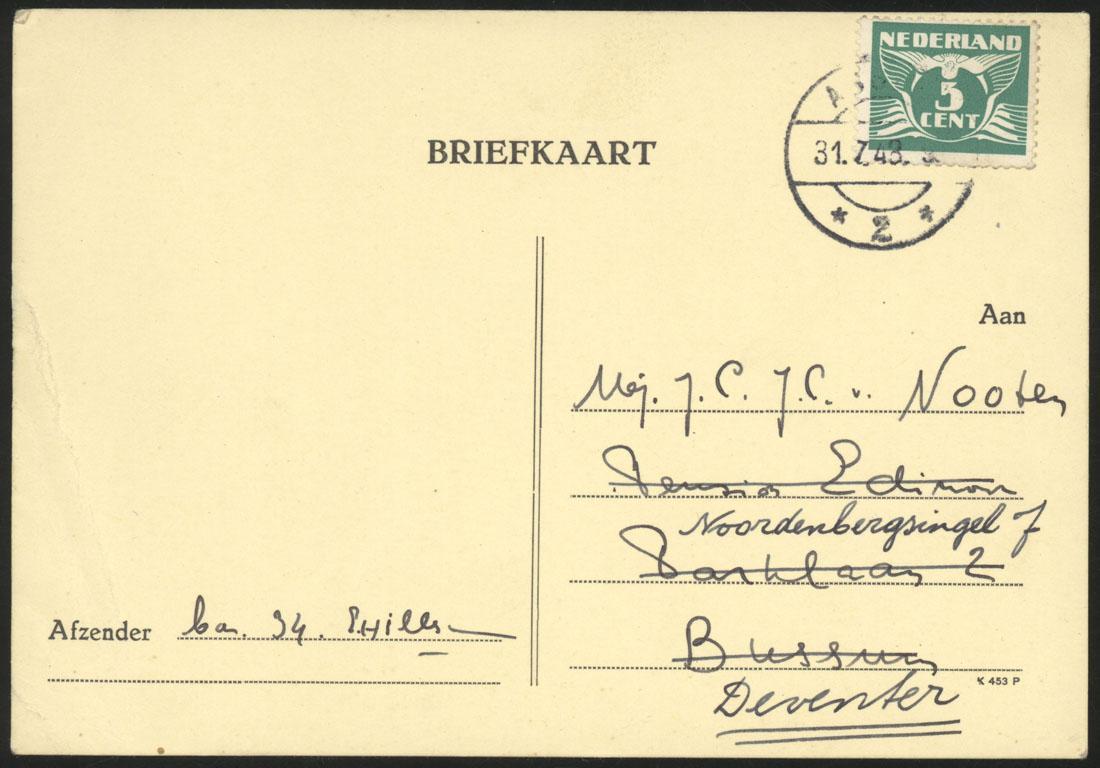 NEDERLAND
5
CENT
31.7.48.
* 2 *
BRIEFKAART
Aan
Mej. J.C. J.C. v. Nooten
Pension Edimon
Noordenbergsingel 7
Parklaan 2
Bussum
Deventer
Afzender
K 453 P